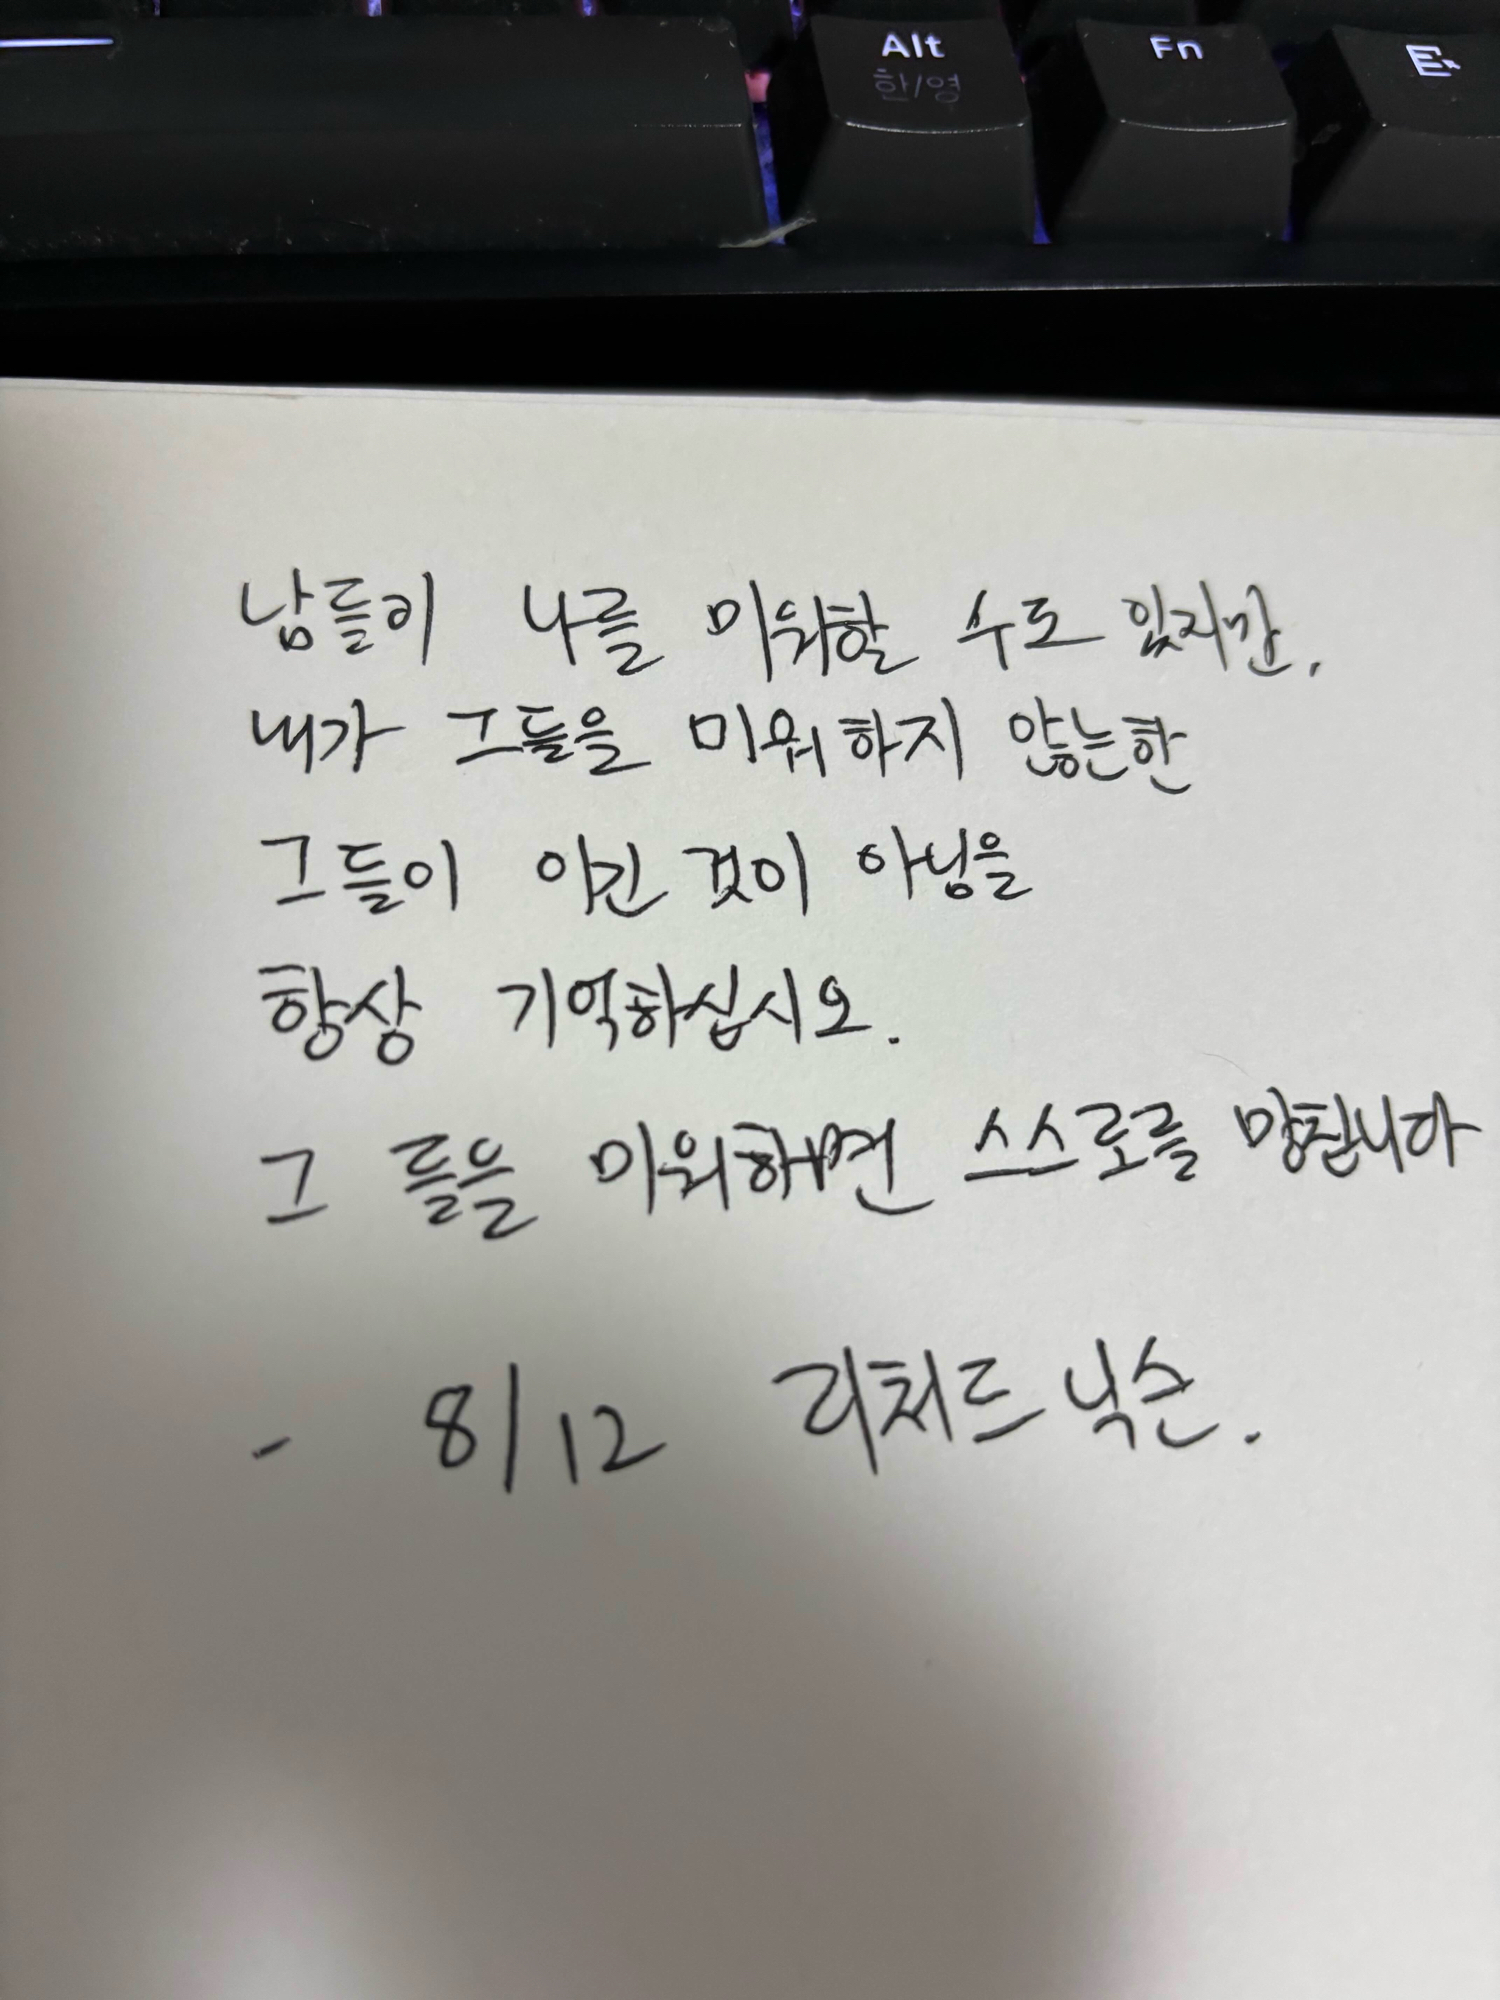 Alt Fn
한/영
남들이 나를 미워할 수도 있지만,
내가 그들을 미워하지 않는한
그들이 이긴 것이 아님을
항상 기억하십시오.
그들을 미워하면 스스로를 망칩니다
- 8/12 리처드 닉슨.